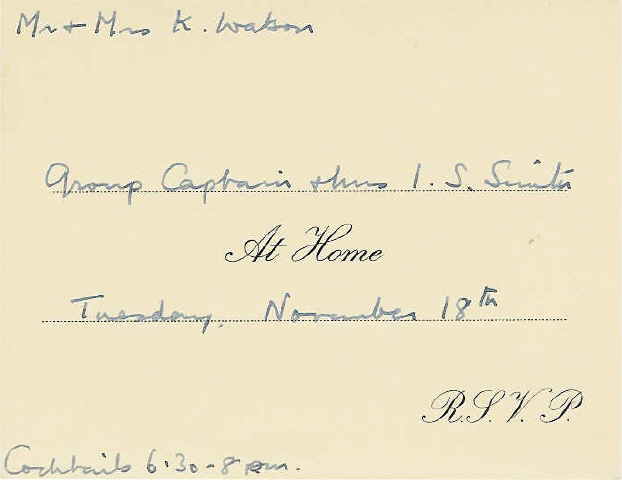 Mr + Mrs K. Watson
Group Captain + Mrs I. S. Smith
At Home
Tuesday, November 18th
R.S.V.P.
Cocktails 6.30 - 8 pm.